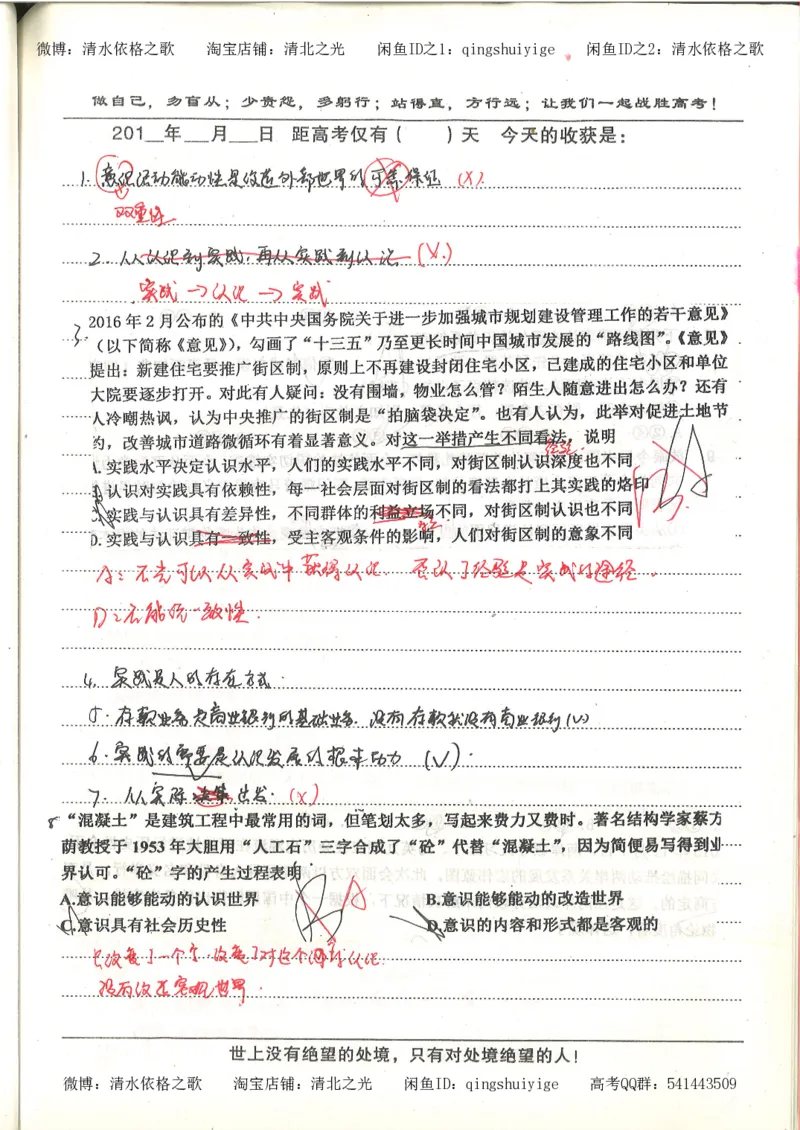 微博：清水依格之歌　淘宝店铺：清北之光　闲鱼ID之1：qingshuiyige　闲鱼ID之2：清水依格之歌
做自己，勿盲从；少责怨，多躬行；站得直，方行远；让我们一起战胜高考！
201__年___月___日 距高考仅有（　　）天 今天的收获是：
1. 意识活动能动性是改造外部世界的可靠保证 (X).
双重性
2. 从认识到实践，再从实践到认识 (X.)
实践→认识→实践
3. 2016年2月公布的《中共中央国务院关于进一步加强城市规划建设管理工作的若干意见》
（以下简称《意见》），勾画了“十三五”乃至更长时间中国城市发展的“路线图”。《意见》
提出：新建住宅要推广街区制，原则上不再建设封闭住宅小区，已建成的住宅小区和单位
大院要逐步打开。对此有人疑问：没有围墙，物业怎么管？陌生人随意进出怎么办？还有
人冷嘲热讽，认为中央推广的街区制是“拍脑袋决定”。也有人认为，此举对促进土地节
约，改善城市道路微循环有着显著意义。对这一举措产生不同看法，说明
A.实践水平决定认识水平，人们的实践水平不同，对街区制认识深度也不同
B.认识对实践具有依赖性，每一社会层面对街区制的看法都打上其实践的烙印
C.实践与认识具有差异性，不同群体的利益立场不同，对街区制认识也不同
D.实践与认识具有一致性，受主客观条件的影响，人们对街区制的意象不同
A：不光可以从实践中获得认识 否认了经验是实践的途径.
D：不能说一致性.
4. 实践是人的存在方式.
5. 存款业务是商业银行的基础业务. 没有存款就没有商业银行 (V)
6. 实践的需要是认识发展的根本动力 (V).
7. 从实际出发. (X)
8 “混凝土”是建筑工程中最常用的词，但笔划太多，写起来费力又费时。著名结构学家蔡方
荫教授于 1953 年大胆用“人工石”三字合成了“砼”代替“混凝土”，因为简便易写得到业
界认可。“砼”字的产生过程表明
A.意识能够能动的认识世界　B.意识能够能动的改造世界
C.意识具有社会历史性　D.意识的内容和形式都是客观的
A
只改变了一个字，改变了对这个词的认识
没有改造客观世界.
世上没有绝望的处境，只有对处境绝望的人！
微博：清水依格之歌　淘宝店铺：清北之光　闲鱼ID：qingshuiyige　高考QQ群：541443509